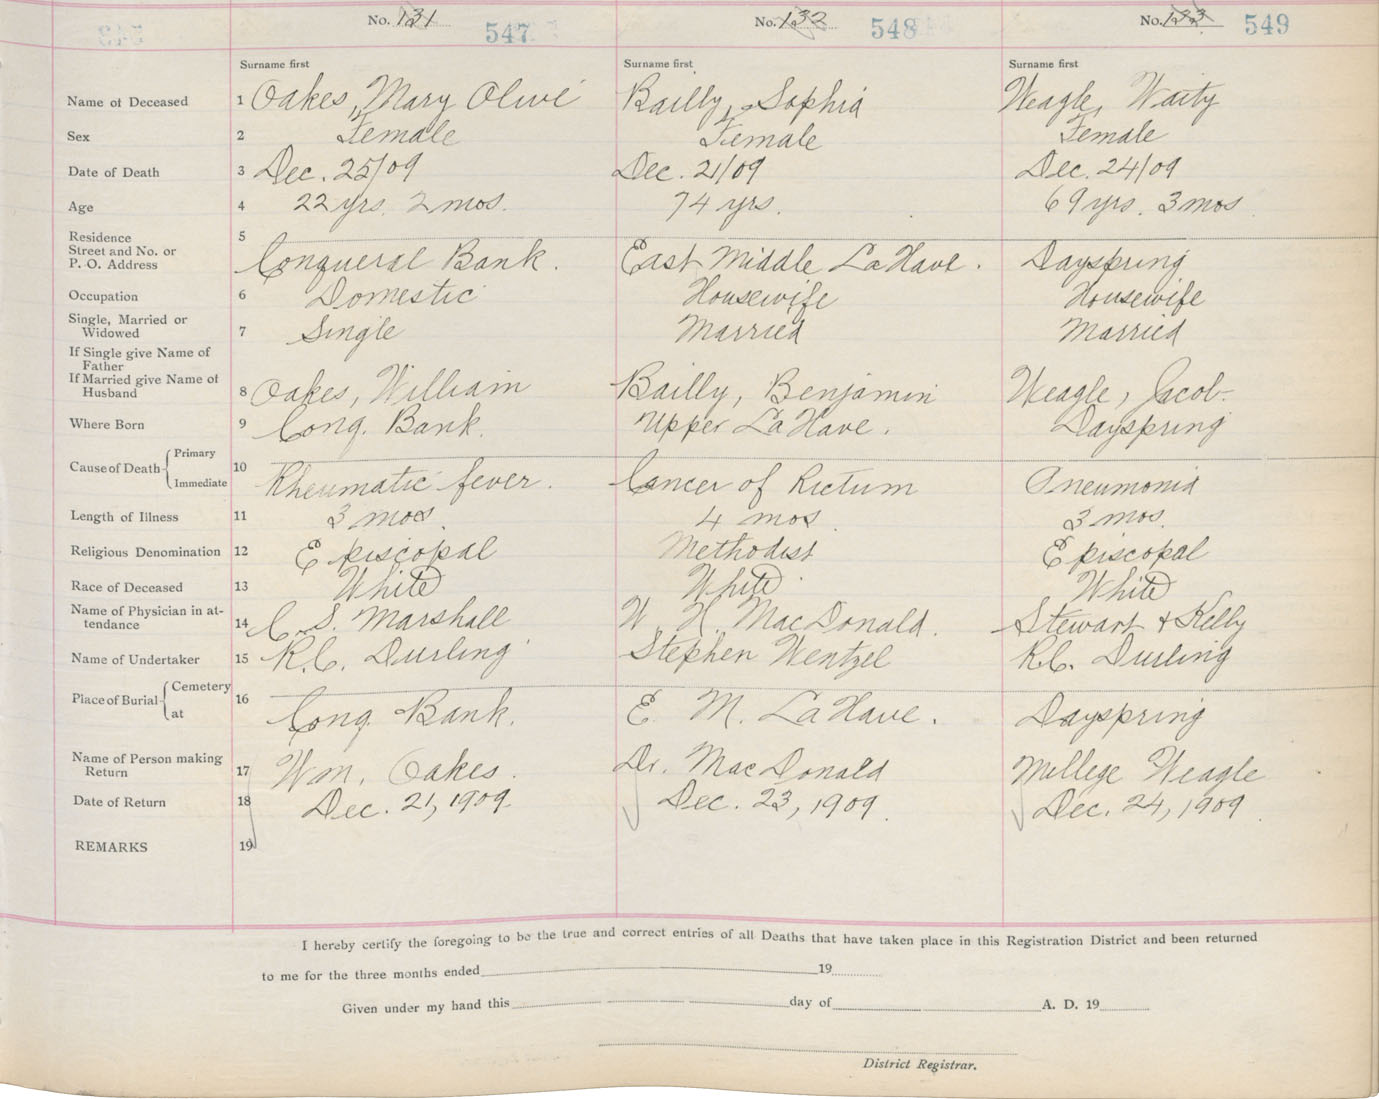 No. 131 547 No. 132 548 No. 133 549
Surname first Surname first Surname first
Name of Deceased 1 Oakes, Mary Olive Bailly, Sophia Weagle, Waity
Sex 2 Female Female Female
Date of Death 3 Dec. 25/09 Dec. 21/09 Dec. 24/09
Age 4 22 yrs. 2 mos. 74 yrs. 69 yrs. 3 mos
Residence 5
Street and No. or
P. O. Address Conqueral Bank. East Middle LaHave. Dayspring
Occupation 6 Domestic Housewife Housewife
Single, Married or
Widowed 7 Single Married Married
If Single give Name of
Father
If Married give Name of
Husband 8 Oakes, William Bailly, Benjamin Weagle, Jacob
Where Born 9 Conq. Bank. Upper LaHave. Dayspring
Cause of Death Primary 10
Immediate Rheumatic fever. Cancer of Rictum Pneumonia
Length of Illness 11 3 mos. 4 mos 3 mos.
Religious Denomination 12 Episcopal Methodist Episcopal
Race of Deceased 13 White White White
Name of Physician in at-
tendance 14 C. S. Marshall W. H. MacDonald. Stewart & Kelly
Name of Undertaker 15 R.C. Durling Stephen Wentzel R.C. Durling
Place of Burial Cemetery 16
at Conq. Bank. E. M. LaHave. Dayspring
Name of Person making
Return 17 Wm. Oakes. Dr. MacDonald Millege Weagle
Date of Return 18 Dec. 21, 1909. Dec. 23, 1909. Dec. 24, 1909.
REMARKS 19
I hereby certify the foregoing to be the true and correct entries of all Deaths that have taken place in this Registration District and been returned
to me for the three months ended 19
Given under my hand this day of A. D. 19
District Registrar.